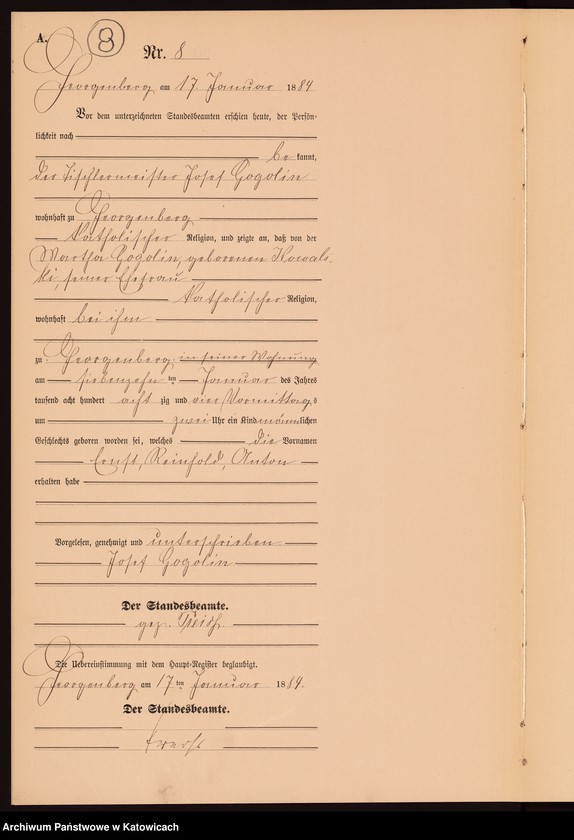 A.
8
Nr. 8
Georgenberg am 17. Januar 1884
Vor dem unterzeichneten Standesbeamten erschien heute, der Persön-
lichkeit nach
be kannt,
der Tischlermeister Josef Gogolin
wohnhaft zu Georgenberg
katholischer Religion, und zeigte an, daß von der
Martha Gogolin, geborenen Kowals-
ki, seiner Ehefrau
katholischer Religion,
wohnhaft bei ihm
zu Georgenberg in seiner Wohnung
am siebenzehn ten Januar des Jahres
tausend acht hundert acht zig und vier Vormittags
um zwei Uhr ein Kind männlichen
Geschlechts geboren worden sei, welches die Vornamen
Ernst, Reinhold, Anton
erhalten habe
Vorgelesen, genehmigt und unterschrieben
Josef Gogolin
Der Standesbeamte.
gez.
Die Uebereinstimmung mit dem Haupt-Register beglaubigt.
Georgenberg am 17 ten Januar 1884.
Der Standesbeamte.
Archiwum Państwowe w Katowicach